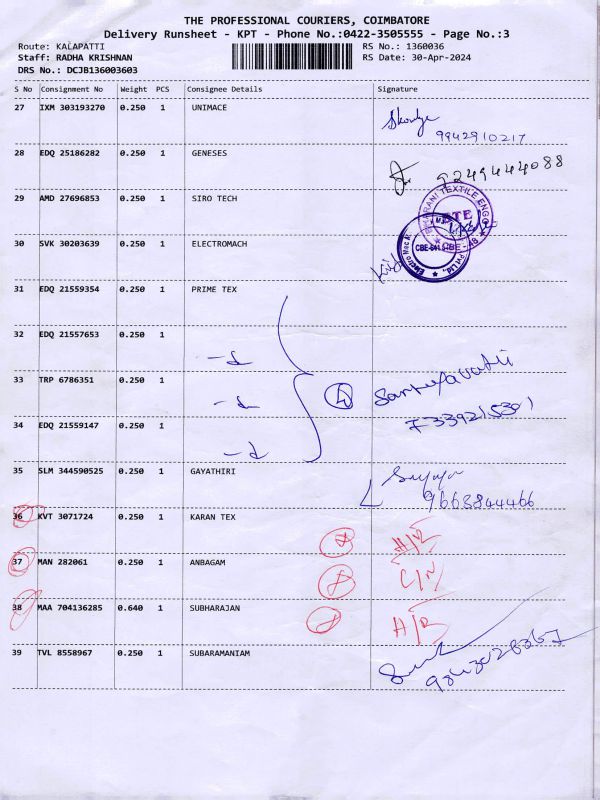 THE PROFESSIONAL COURIERS, COIMBATORE
Delivery Runsheet - KPT - Phone No.:0422-3505555 - Page No.:3
Route: KALAPATTI RS No.: 1360036
Staff: RADHA KRISHNAN RS Date: 30-Apr-2024
DRS No.: DCJB136003603
S No Consignment No Weight PCS Consignee Details Signature
27 IXM 303193270 0.250 1 UNIMACE
9942910217
28 EDQ 25186282 0.250 1 GENESES
9249444088
29 AMD 27696853 0.250 1 SIRO TECH
30 SVK 30203639 0.250 1 ELECTROMACH
31 EDQ 21559354 0.250 1 PRIME TEX
32 EDQ 21557653 0.250 1
33 TRP 6786351 0.250 1
34 EDQ 21559147 0.250 1
35 SLM 344590525 0.250 1 GAYATHIRI
9668844466
36 KVT 3071724 0.250 1 KARAN TEX
37 MAN 282061 0.250 1 ANBAGAM
38 MAA 704136285 0.640 1 SUBHARAJAN
39 TVL 8558967 0.250 1 SUBARAMANIAM